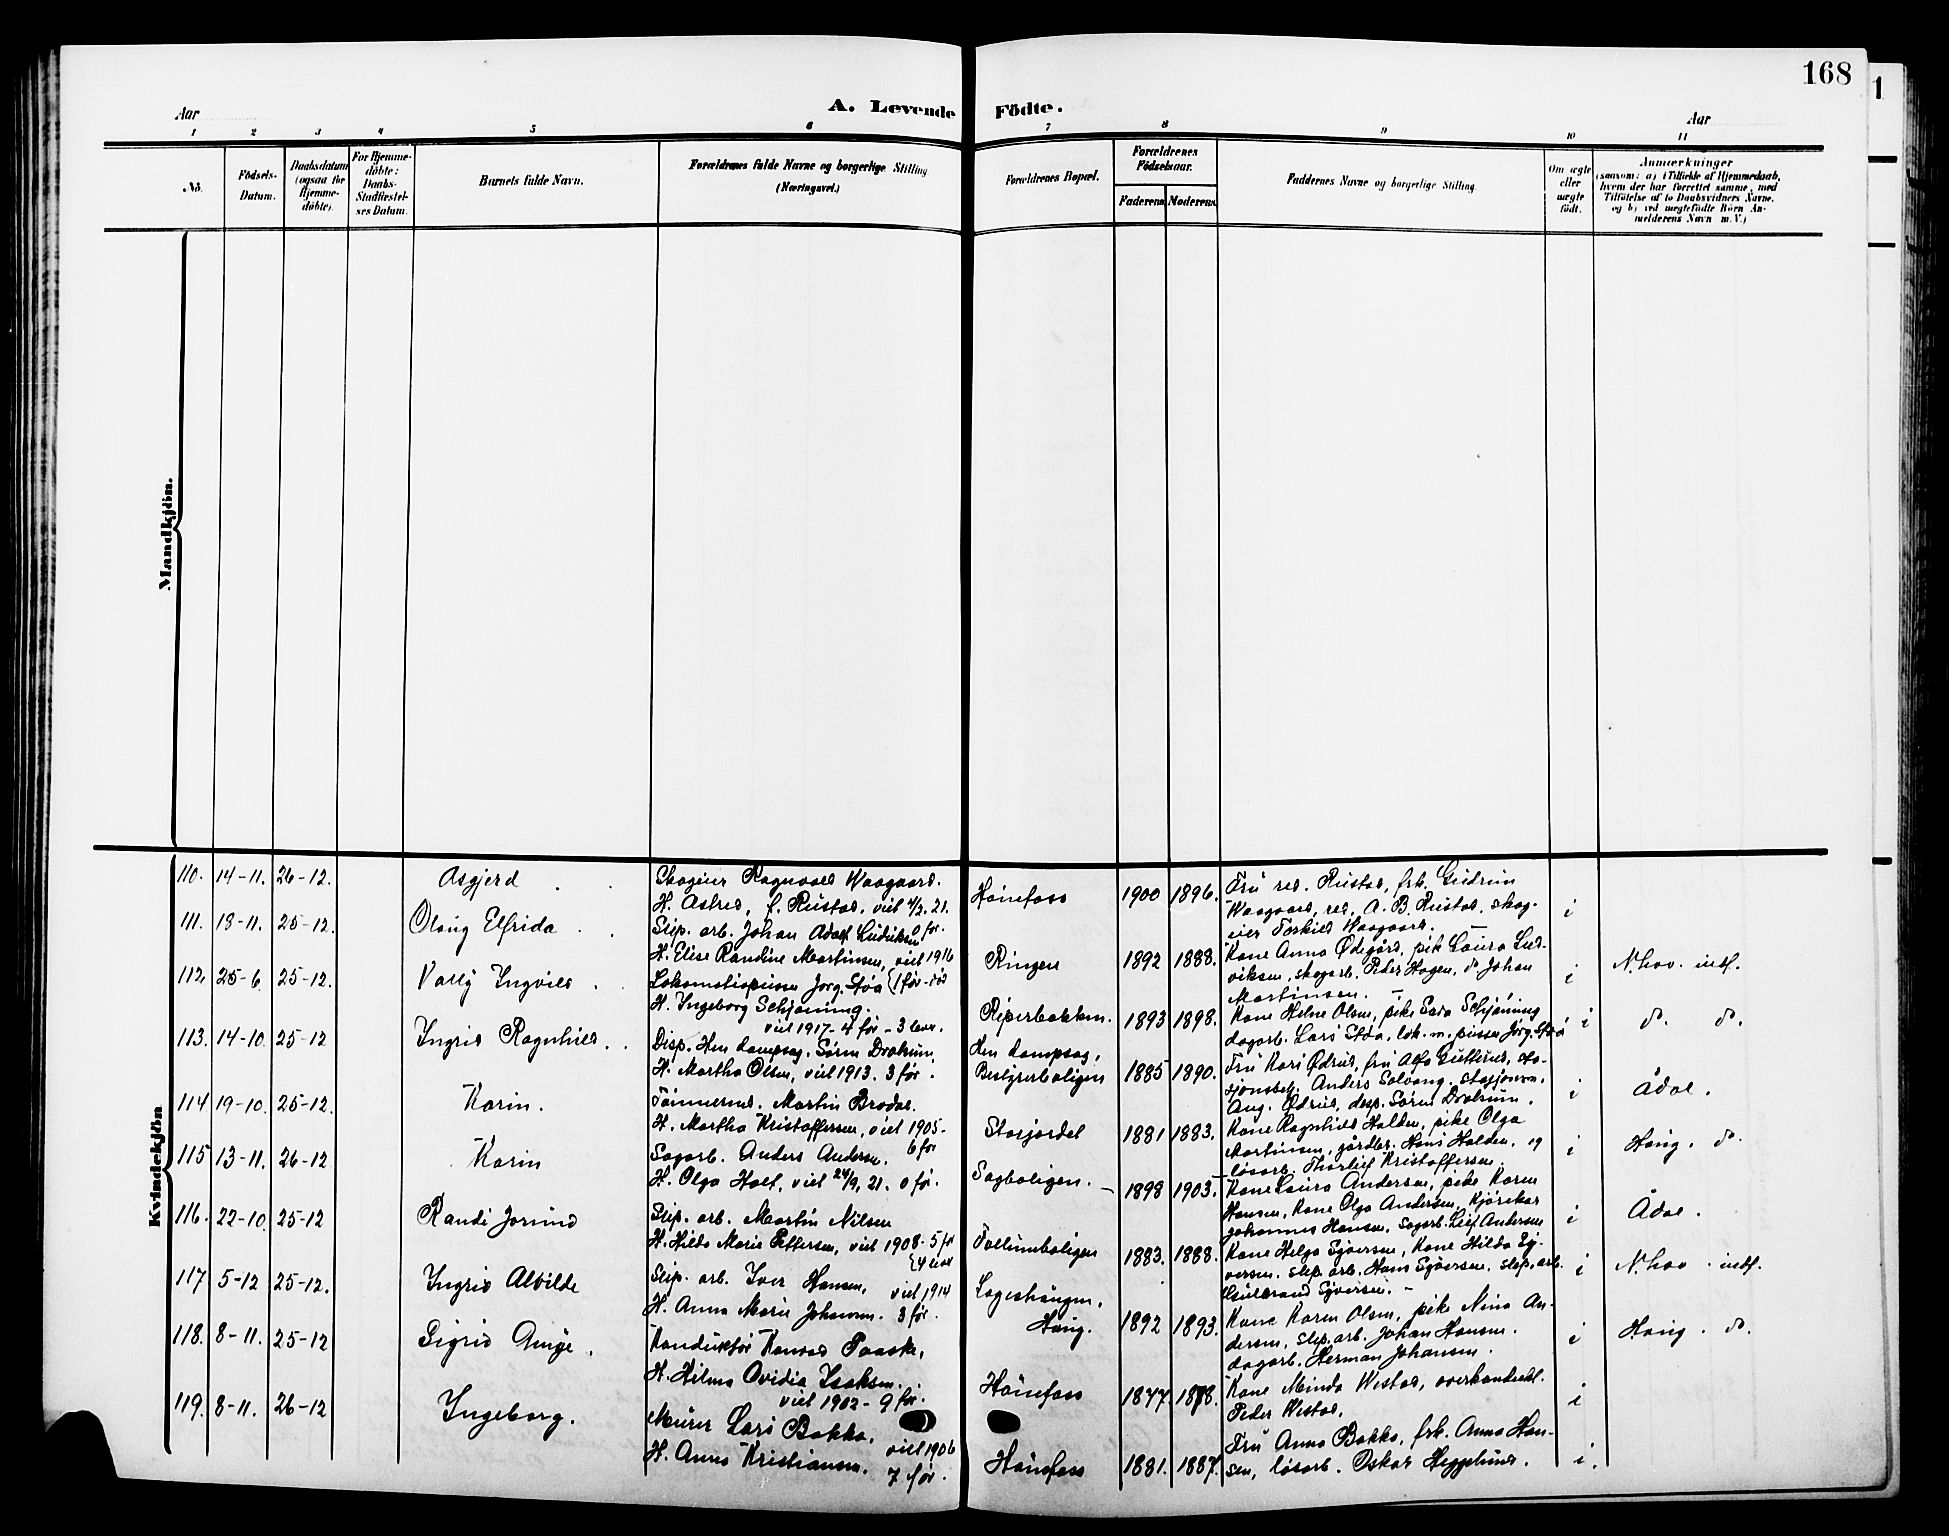 168
1
A. Levende Födte.
Aar
Aar
1 2 3 4 5 6 7 8 9 10 11
No.
Födsels-Datum.
Daabsdatum (ogsaa for Hjemmedöbte).
For Hjemmedöbte: Daabs-Stadfæstelses Datum.
Barnets fulde Navn.
Forældrenes fulde Navne og borgerlige Stilling (Næringsvei.)
Forældrenes Bopæl.
Forældrenes Födselsaar.
Faderens
Moderens
Faddernes Navne og borgerlige Stilling.
Om ægte eller uægte födt.
Anmærkninger
(saasom: a) i Tilfælde af Hjemmedaab, hvem der har forrettet samme, med Tilföielse af to Daabsvidners Navne, og b) ved uægtefödte Börn Anmelderens Navn m. V.)
Mandkjön.
Kvindekjön
110. 14-11. 26-12. Asgjerd
Skogeier Ragnvald Waagaard.
H. Astrid, f. Rustad, viet 4/2. 21. 0 før.
Hönefoss 1900 1896.
Fru red. Rustad, frk. Gudrun
Waagaard, red. A. B. Rustad, skog-
eier Torkild Waagaard. i
111. 18-11. 25-12. Olaug Elfrida
Slip. arb. Johan Adolf Ludviksen
H. Elise Randine Martinsen, viet 1916
Ringen 1892 1888.
Kone Anna Ødegård, pik Laura Lud-
viksen, skogarb. Peder Hagen, do Johan
Martinsen. i N.hov. indl.
112. 25-6. 25-12. Vally Ingvild
Lokomotivpusser Jørg. Stöa
H. Ingeborg Schjøning.
viet 1917 - 4 før - 3 lever.
Riperbakken. 1893 1898.
Kone Helene Olsen, pike Sara Schjøning
dagarb. Lars Stöa, lok.m. pusser Jørg. Stöa i do. do.
113. 14-10. 25-12 Ingrid Ragnhild
Disp. Hen dampsag, Sören Drolsum,
H. Martha Olsen, viet 1913. 3 før.
Hen dampsag,
Bestyrerboligen 1885 1890.
Fru Kari Ødrud, fru Alfa Gutterud, sta-
sjonsbetj. Anders Solvang. stasjonsm.
Aug. Ødrud, disp. Sören Drolsum. i Ådal.
114 19-10. 25-12. Karin.
Tömmermd. Martin Brodal.
H. Martha Kristoffersen, viet 1905-
6 før
Storjordet 1881 1883.
Kone Ragnhild Halden, pike Olga
Martinsen, gårdbr. Hans Halden, og
lösarb. Thorleif Kristoffersen. i Haug. do.
115 13-11. 26-12 Karin
Sagarb. Anders Andersen.
H. Olga Holt, viet 24/9, 21. 0 før.
Sagboligen. 1898 1903.
Kone Laura Andersen, pike Karen
Hansen, Kone Olga Andersen, Kjörekar
Johannes Hansen, sagarb. Leif Andersen i Ådal.
116. 22-10. 25-12 Randi Jorund
Slip. arb. Martin Nilsen
H. Hilda Marie Pettersen, viet 1908 - 5 før
Follumboligen 1883. 1888.
Kone Helga Syversen, Kone Hilda Sy-
versen. slip. arb. Hans Syversen, slip. arb.
Gulbrand Syversen. i N.hov. indl.
117 5-12 25-12. Ingrid Alvilde
Slip. arb. Iver Hansen, viet 1914
H. Anna Marie Johansen. 3 før.
Haug. 1892 1893.
Kone Karen Olsen, pike Nina An-
dersen, slip. arb. Johan Hansen.
dagarb. Herman Johansen. i Haug. do.
118. 8-11. 25-12 Sigrid
Konduktör Konrad Paaske,
H. Hilma Ovidia Isaksen.
viet 1902 - 9 før.
Hönefoss 1877. 1878.
Kone Minda Westad, overkonduktl.
Peder Westad. i
119. 8-11. 26-12 Ingeborg.
Murer Lars Bakka,
H. Anna Kristiansen. viet 1906
7 før.
Hönefoss 1881. 1887.
Fru Anna Bakka, frk. Anna Han-
sen, lösarb. Oskar Heggelund. i.